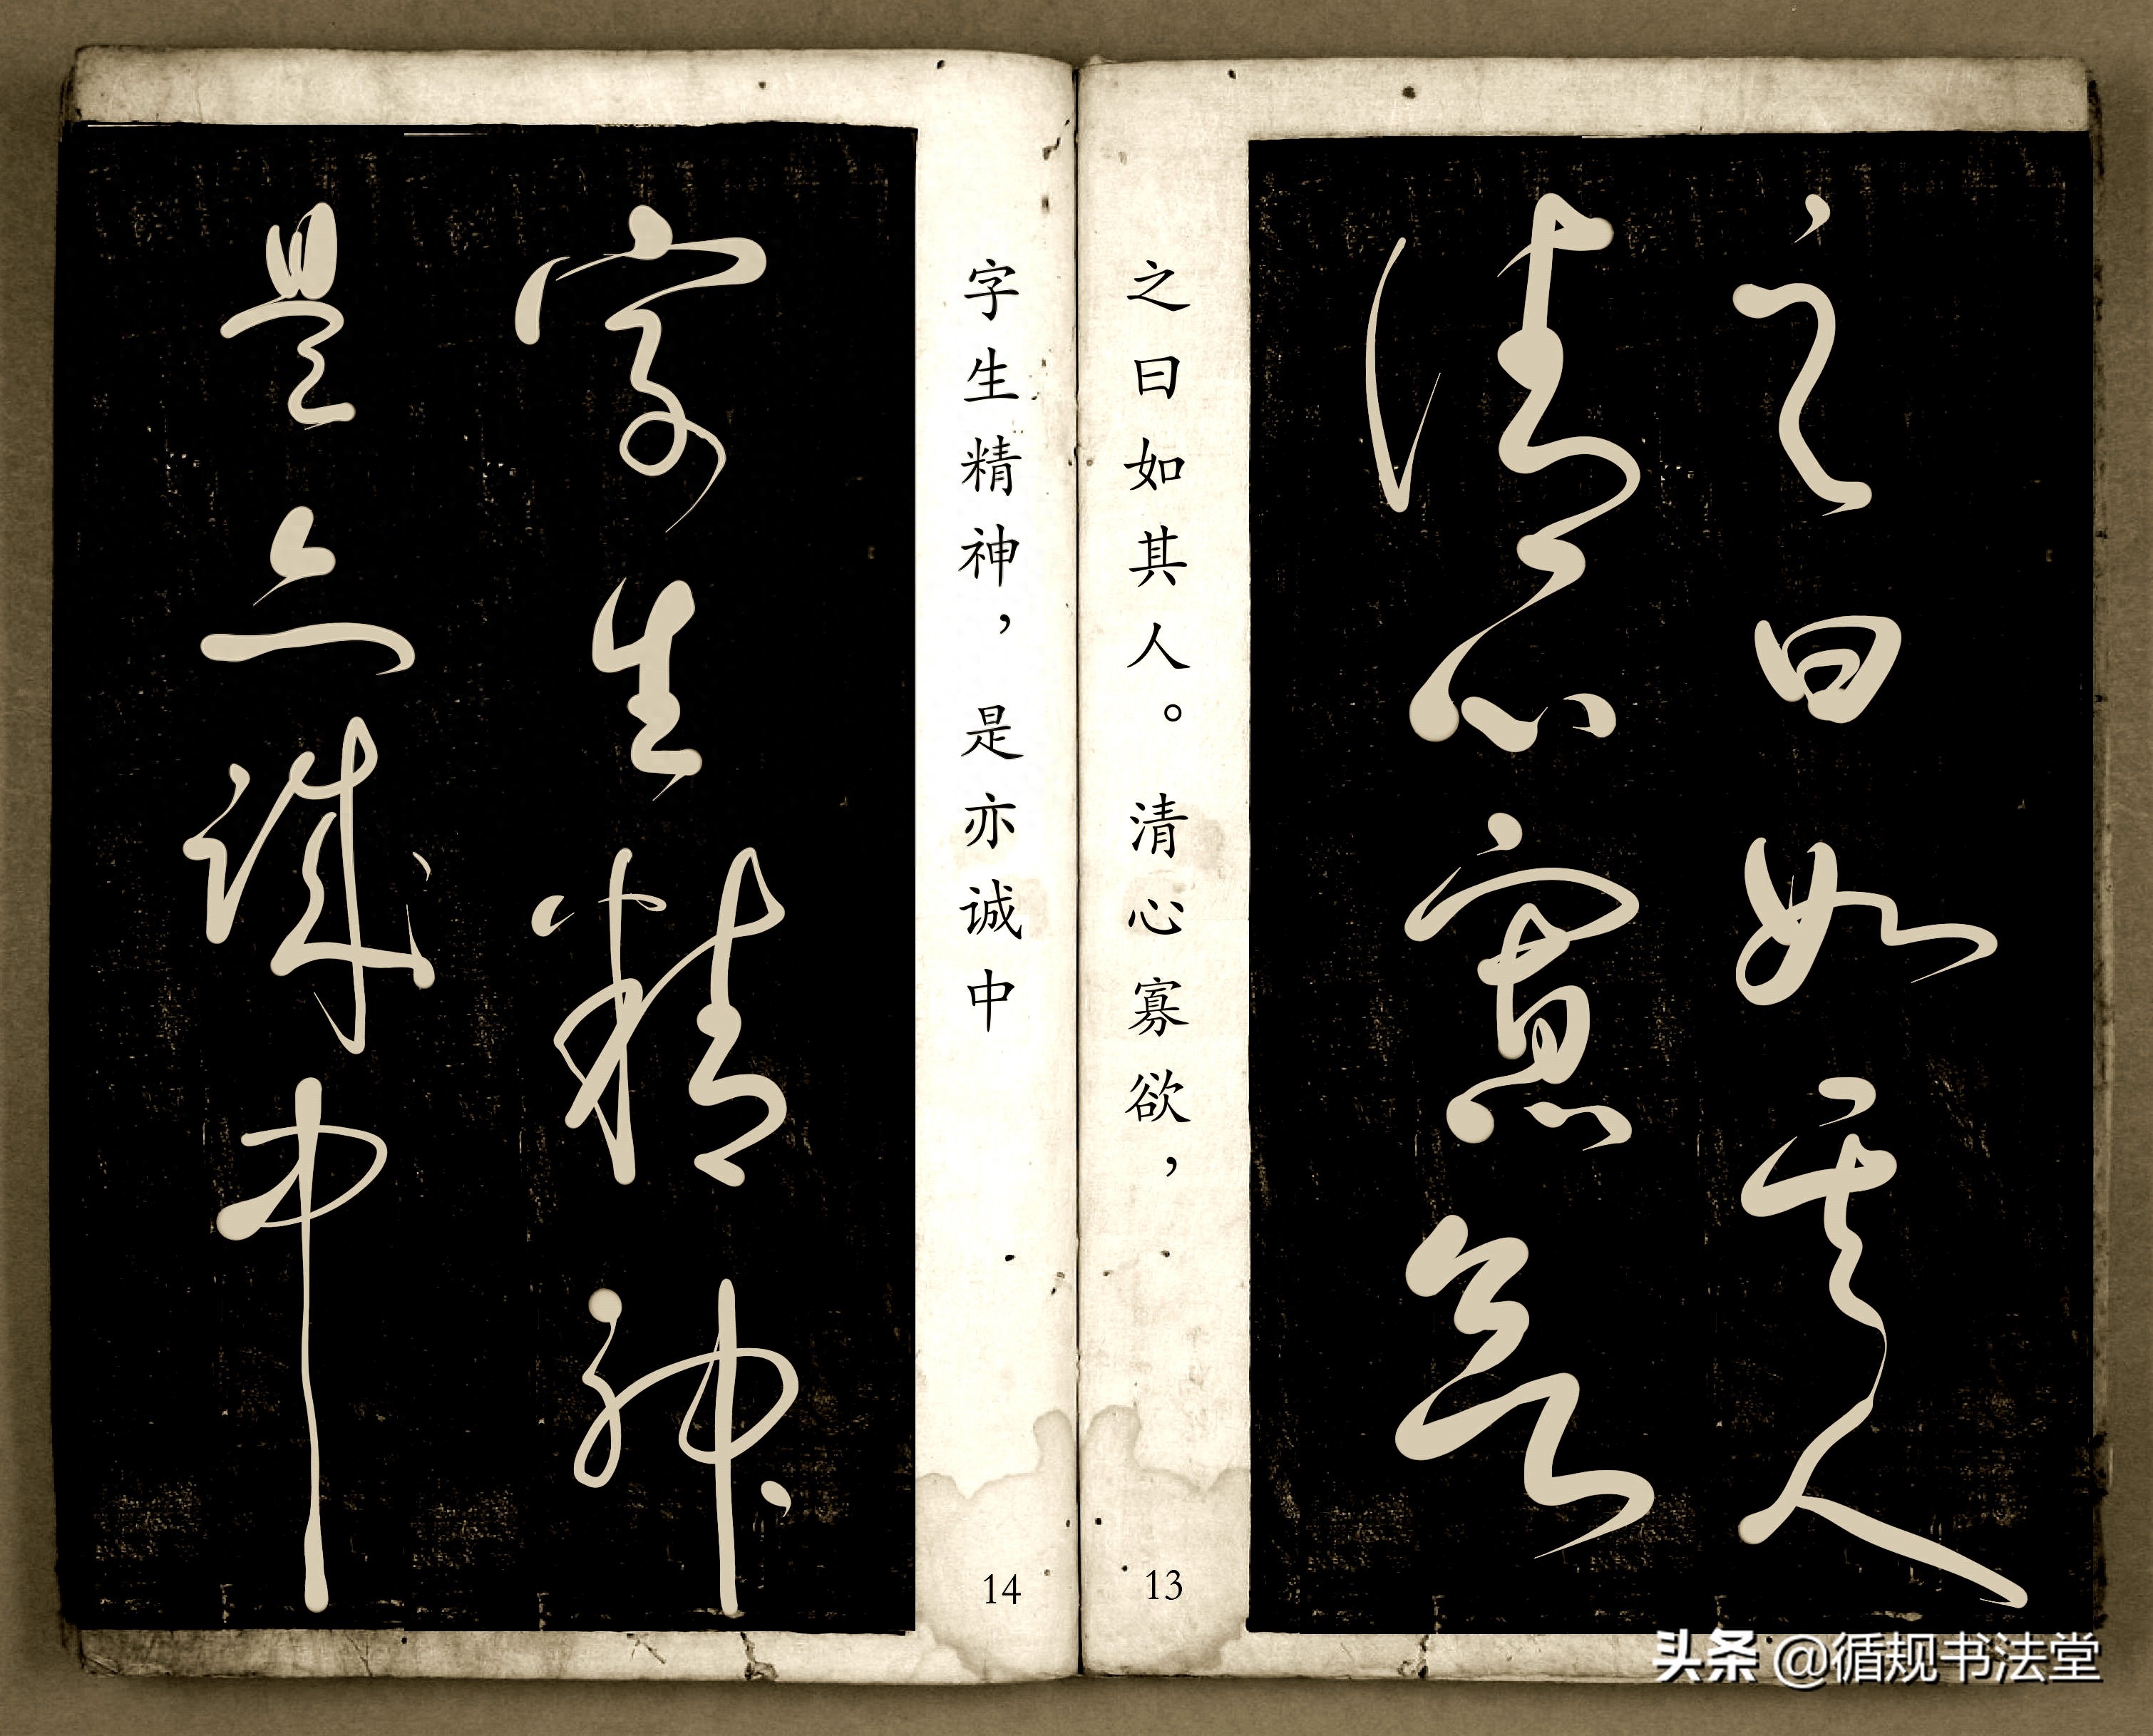 之曰如其人
清心寡欲
之曰如其人。清心寡欲，
13
字生精神
是亦诚中
字生精神，是亦诚中
14
头条 @循规书法堂